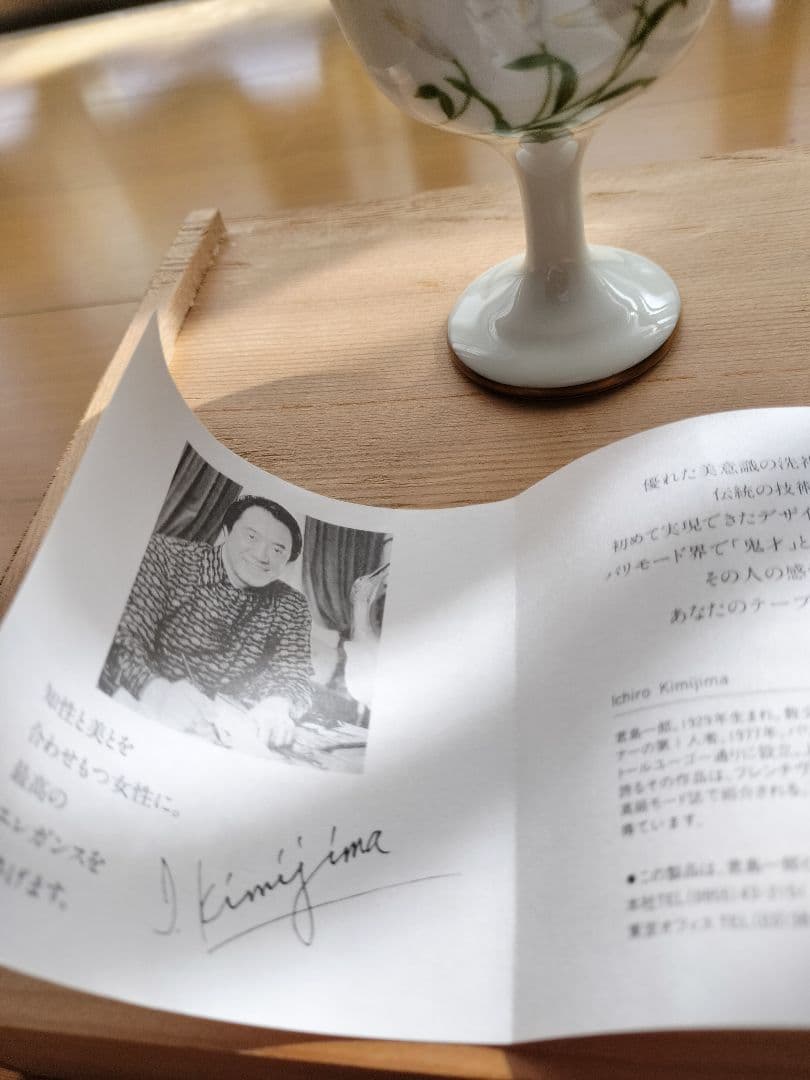 知性と美とを
合わせもつ女性に。
最高の
エレガンスを
げます。
I. Kimijima
優れた美意識の洗
伝統の技術
初めて実現できたデザイ
パリモード界で「鬼才」と
その人の感
あなたのテーブ
Ichiro Kimijima
君島一郎。1929年生まれ。
ナーの第1人者。1977年、パリ
トールユーゴー通りに設立。
誇るその作品は、フレンチヴ
高級モード誌で紹介される。
得ています。
●この製品は、君島一郎
本社TEL(0955)43-215
東京オフィス TEL(03)